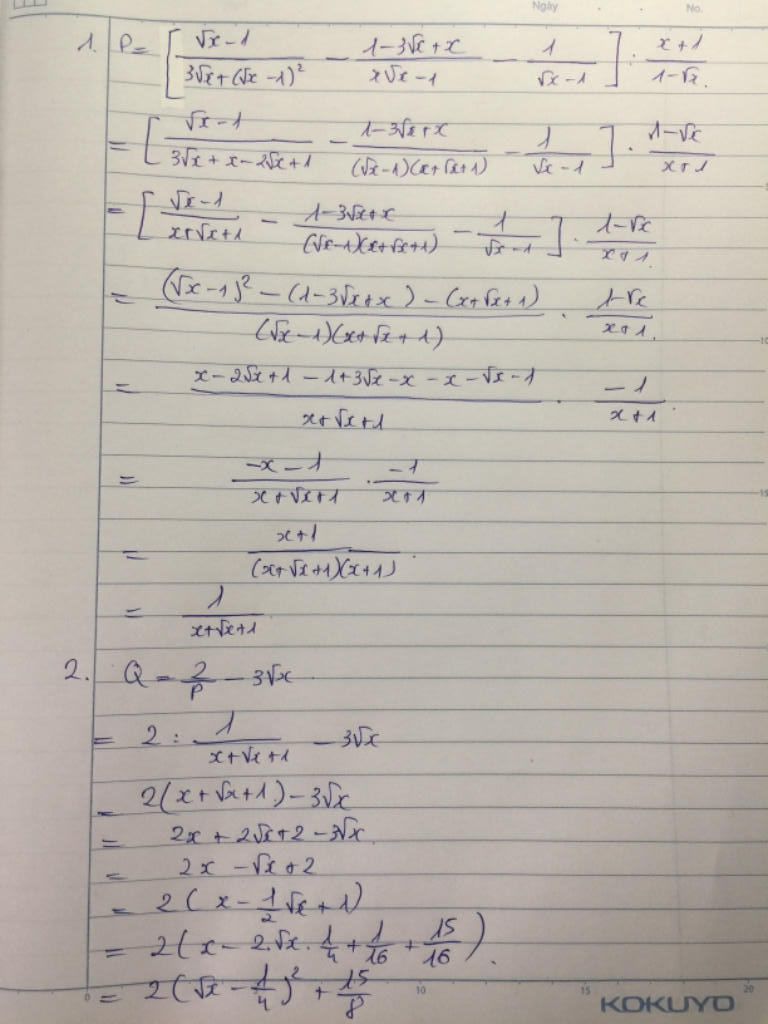 Ngày No.
1. P = [ (√x - 1)/(3√x + (√x - 1)²) - (1 - 3√x + x)/(x√x - 1) - 1/(√x - 1) ] : (x + 1)/(1 - √x).
= [ (√x - 1)/(3√x + x - 2√x + 1) - (1 - 3√x + x)/((√x - 1)(x + √x + 1)) - 1/(√x - 1) ] · (1 - √x)/(x + 1)
= [ (√x - 1)/(x + √x + 1) - (1 - 3√x + x)/((√x - 1)(x + √x + 1)) - 1/(√x - 1) ] · (1 - √x)/(x + 1)
= ((√x - 1)² - (1 - 3√x + x) - (x + √x + 1))/((√x - 1)(x + √x + 1)) · (1 - √x)/(x + 1).
= (x - 2√x + 1 - 1 + 3√x - x - x - √x - 1)/(x + √x + 1) · (-1)/(x + 1).
= (-x - 1)/(x + √x + 1) · (-1)/(x + 1)
= (x + 1)/((x + √x + 1)(x + 1)).
= 1/(x + √x + 1)
2. Q = 2/P - 3√x
= 2 : 1/(x + √x + 1) - 3√x
= 2(x + √x + 1) - 3√x
= 2x + 2√x + 2 - 3√x
= 2x - √x + 2
= 2(x - 1/2 √x + 1)
= 2(x - 2.√x . 1/4 + 1/16 + 15/16).
= 2(√x - 1/4)² + 15/8
0 10 15 20
KOKUYO